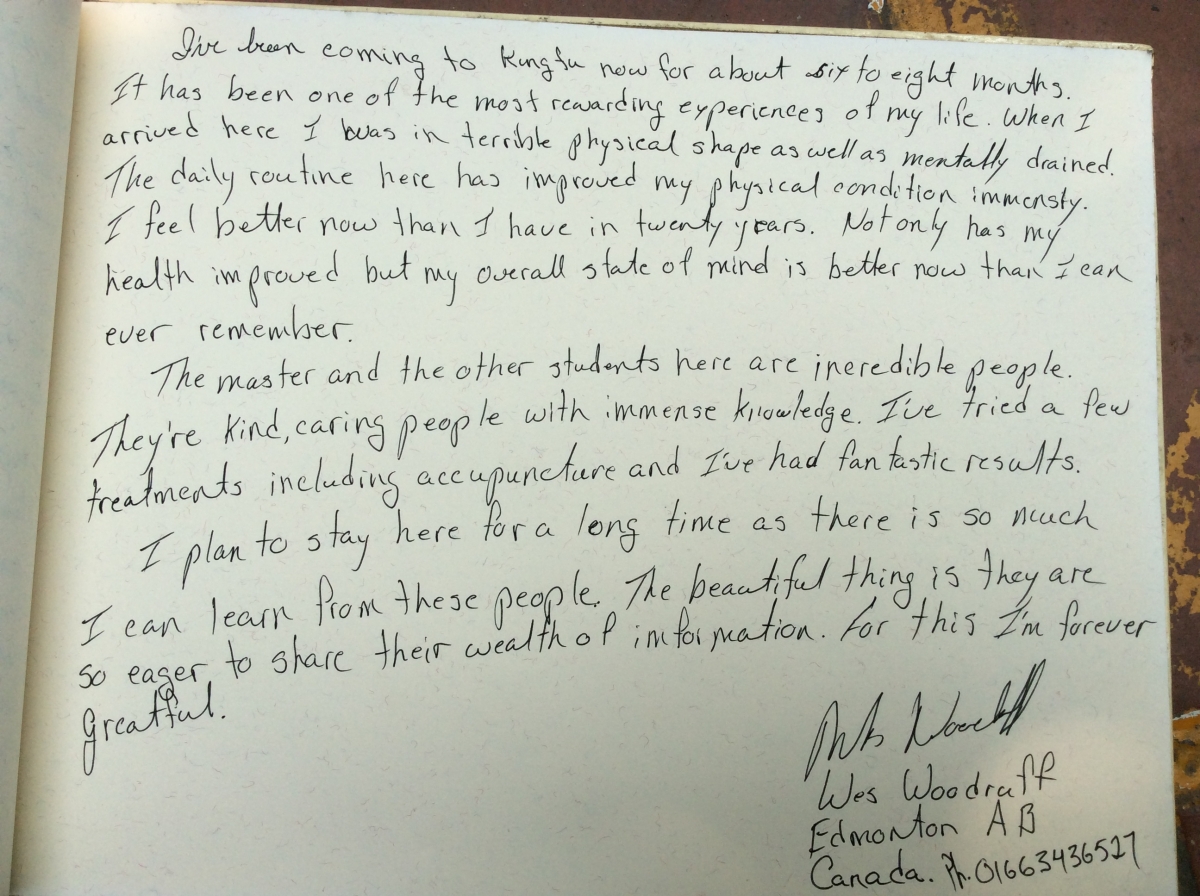 I've been coming to Kungfu now for about six to eight months.
It has been one of the most rewarding experiences of my life. When I
arrived here I was in terrible physical shape as well as mentally drained.
The daily routine here has improved my physical condition immensty.
I feel better now than I have in twenty years. Not only has my
health improved but my overall state of mind is better now than I can
ever remember.
The master and the other students here are incredible people.
They're kind, caring people with immense knowledge. I've tried a few
treatments including accupuncture and I've had fantastic results.
I plan to stay here for a long time as there is so much
I can learn from these people. The beautiful thing is they are
so eager to share their wealth of information. For this I'm forever
greatful.
Wes Woodruff
Edmonton AB
Canada. Ph. 01663436527